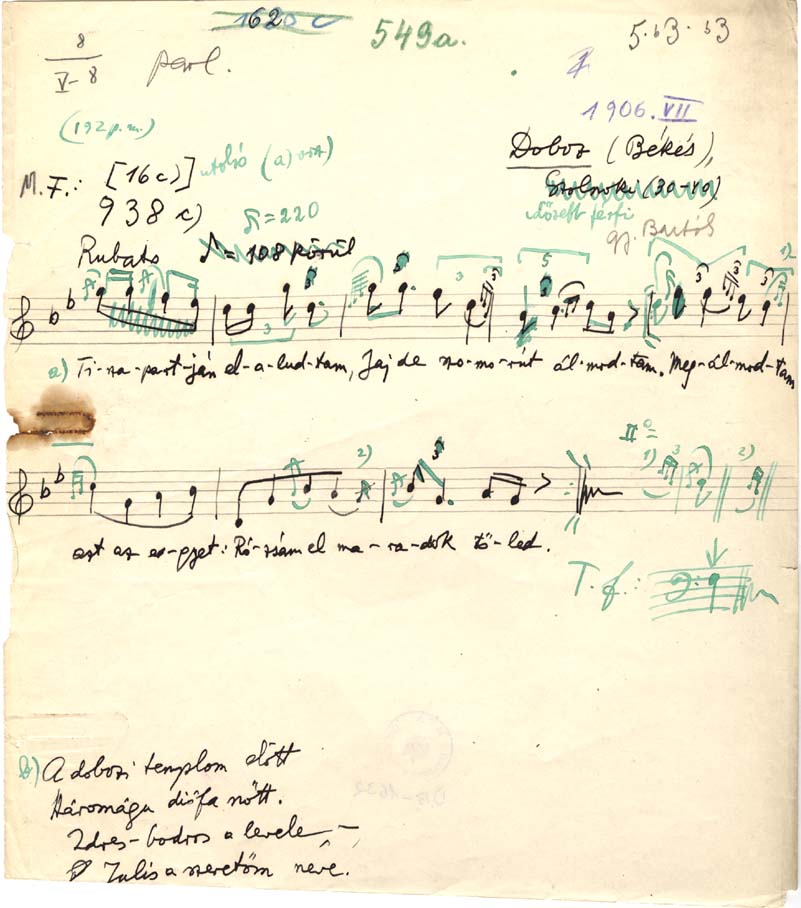 1620 c
549a.
5·b3·b3
8
V–8
parl.
(192 p.m.)
1906. VII
Doboz (Békés),
M. F.: [16c)]
utolsó (a)
938 c)
(30–40)
idősebb férfi
♪=220
gy. Bartók
Rubato
♪=108 körül
3
3
3
5
3
3
1)
a) Ti-sza-part-ján el-a-lud-tam, Jaj de szo-mo-rút ál-mod-tam. Meg-ál-mod-tam
II°=
2)
1)
3
2)
ezt az e-gyet: Ró-zsám el ma-ra-dok tő-led.
T. f.:
b) A dobozi templom előtt
Háromágu diófa nőtt.
Zdres-bodros a levele,
Julis a szeretőm neve.